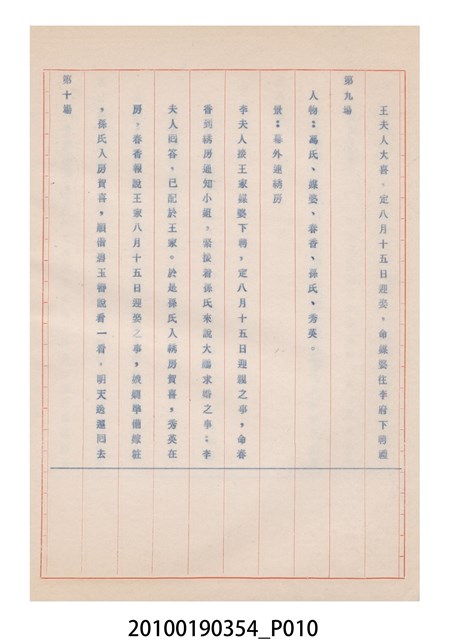 王夫人大喜。定八月十五日迎娶,命媒婆往李府下聘禮
第九場
人物:馮氏、媒婆、春香、孫氏、秀英。
景:幕外連繡房
李夫人接王家媒婆下聘,定八月十五日迎親之事,命春
香到繡房通知小姐,緊接着孫氏來說大、求婚之事;李
夫人回答,已配於王家。於是孫氏入繡房賀喜,秀英在
房。春香報說王家八月十五日迎娶之事,準備嫁粧
,孫氏入房賀喜,順借碧玉簪說看一看。明天送還回去
第十場
20100190354_P010